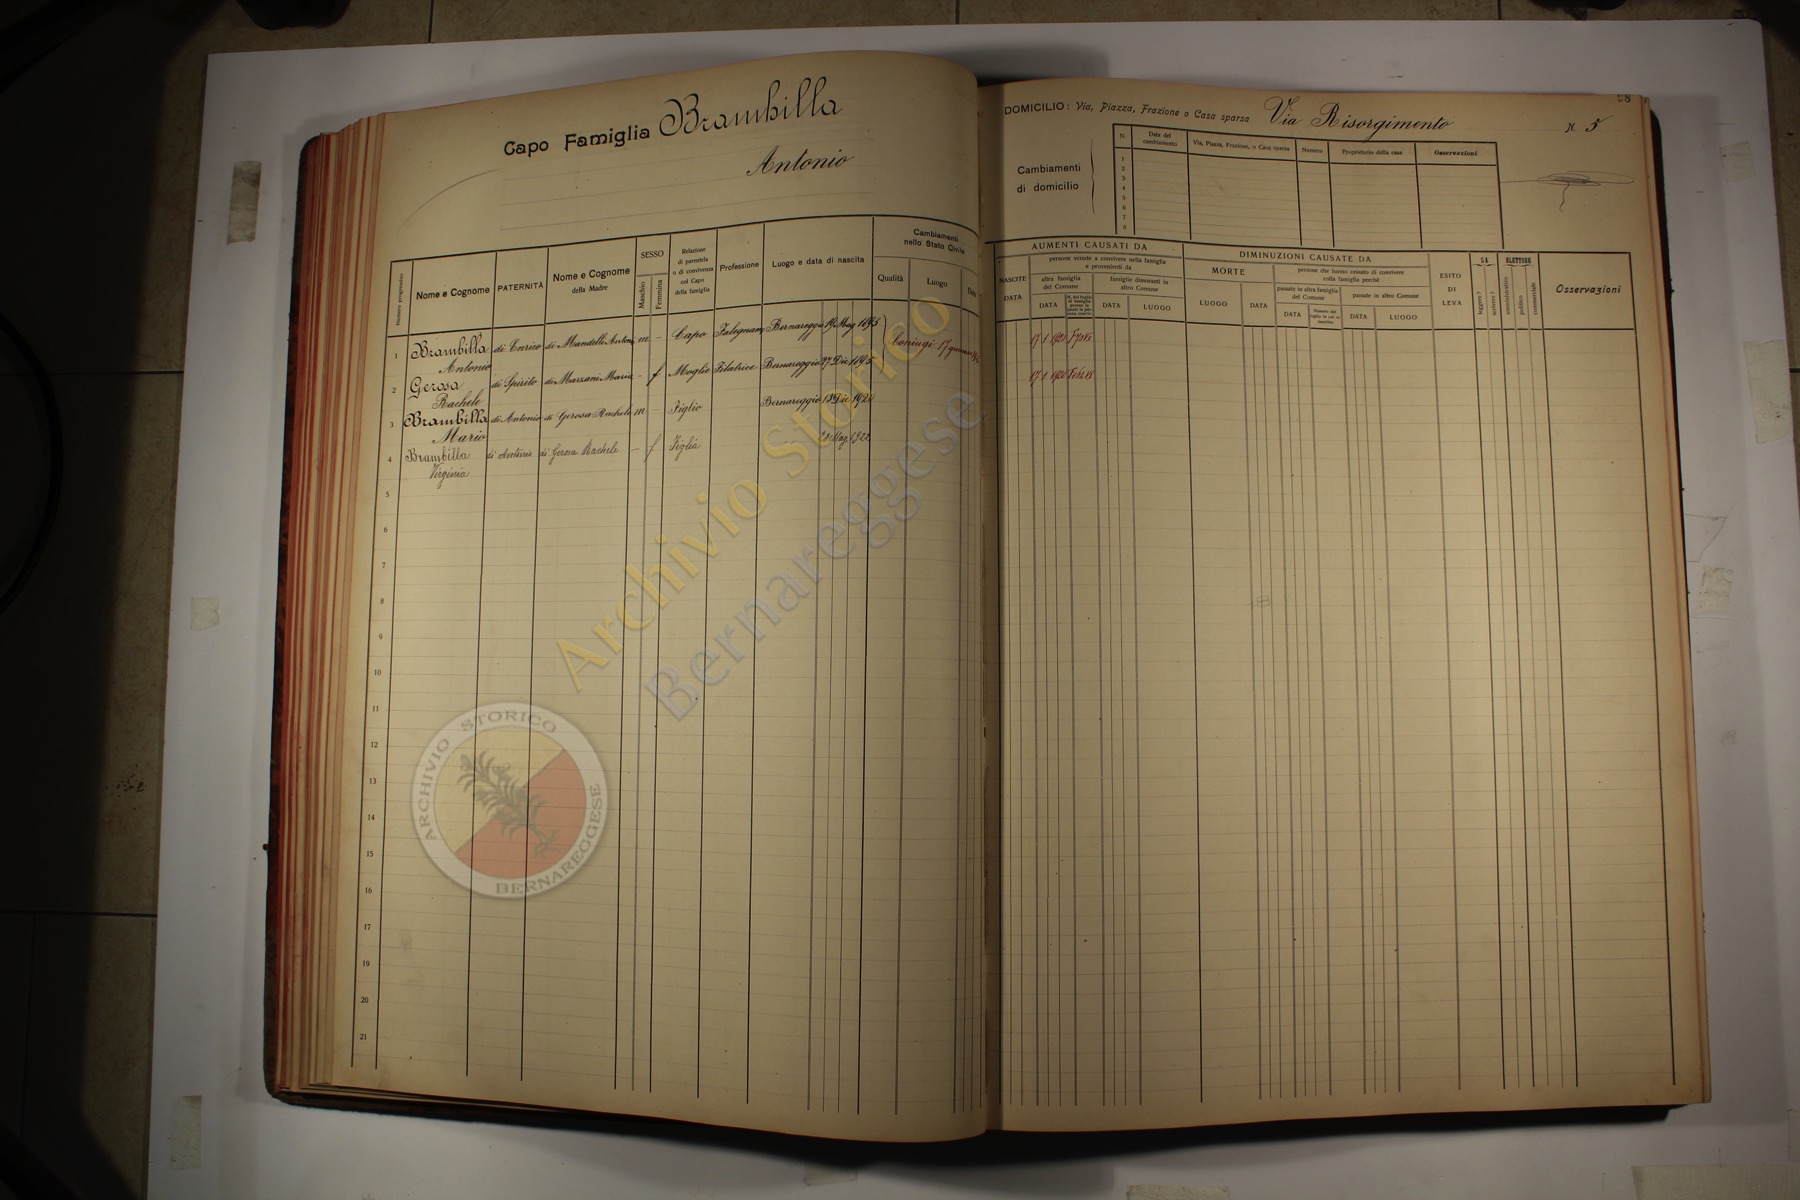 Capo Famiglia Brambilla
Antonio
Numero progressivo
Nome e Cognome
PATERNITÀ
Nome e Cognome
della Madre
SESSO
Maschio
Femmina
Relazione
di parentela
o di convivenza
col Capo
della famiglia
Professione
Luogo e data di nascita
Cambiamenti
nello Stato Civile
Qualità
Luogo
Data
1 Brambilla di Enrico di Mandelli m - Capo Falegname Bernareggio 19 Mag 1895 Coniugi 17
Antonio
2 Gerosa di Spirito di Marzani Maria - f Moglie Filatrice Bernareggio 27 Dic 1895
Rachele
3 Brambilla di Antonio di Gerosa Rachele m - Figlio Bernareggio Dic
Mario
4 Brambilla di Antonio di Gerosa Rachele - f Figlia Mag 1922
Virginia
5
6
7
8
9
10
11
12
13
14
15
16
17
18
19
20
21
DOMICILIO: Via, Piazza, Frazione o Casa sparsa Via Risorgimento N. 5
Cambiamenti
di domicilio
N.
Data del
cambiamento
Via, Piazza, Frazione, o Casa sparsa
Numero
Proprietario della casa
Osservazioni
1
2
3
4
5
6
7
8
AUMENTI CAUSATI DA
NASCITE
DATA
persone venute a convivere nella famiglia
e provenienti da
altra famiglia
del Comune
DATA
famiglie dimoranti in
altro Comune
DATA
LUOGO
DIMINUZIONI CAUSATE DA
MORTE
LUOGO
DATA
persone che hanno cessato di convivere
colla famiglia perchè
passate in altra famiglia
del Comune
DATA
passate in altro Comune
DATA
LUOGO
ESITO
DI
LEVA
SA
leggere?
scrivere?
ELETTORE
amministrativo
politico
commerciale
Osservazioni
17 1 1920
17 1 1920
Archivio Storico
Bernareggese
ARCHIVIO STORICO
BERNAREGGESE